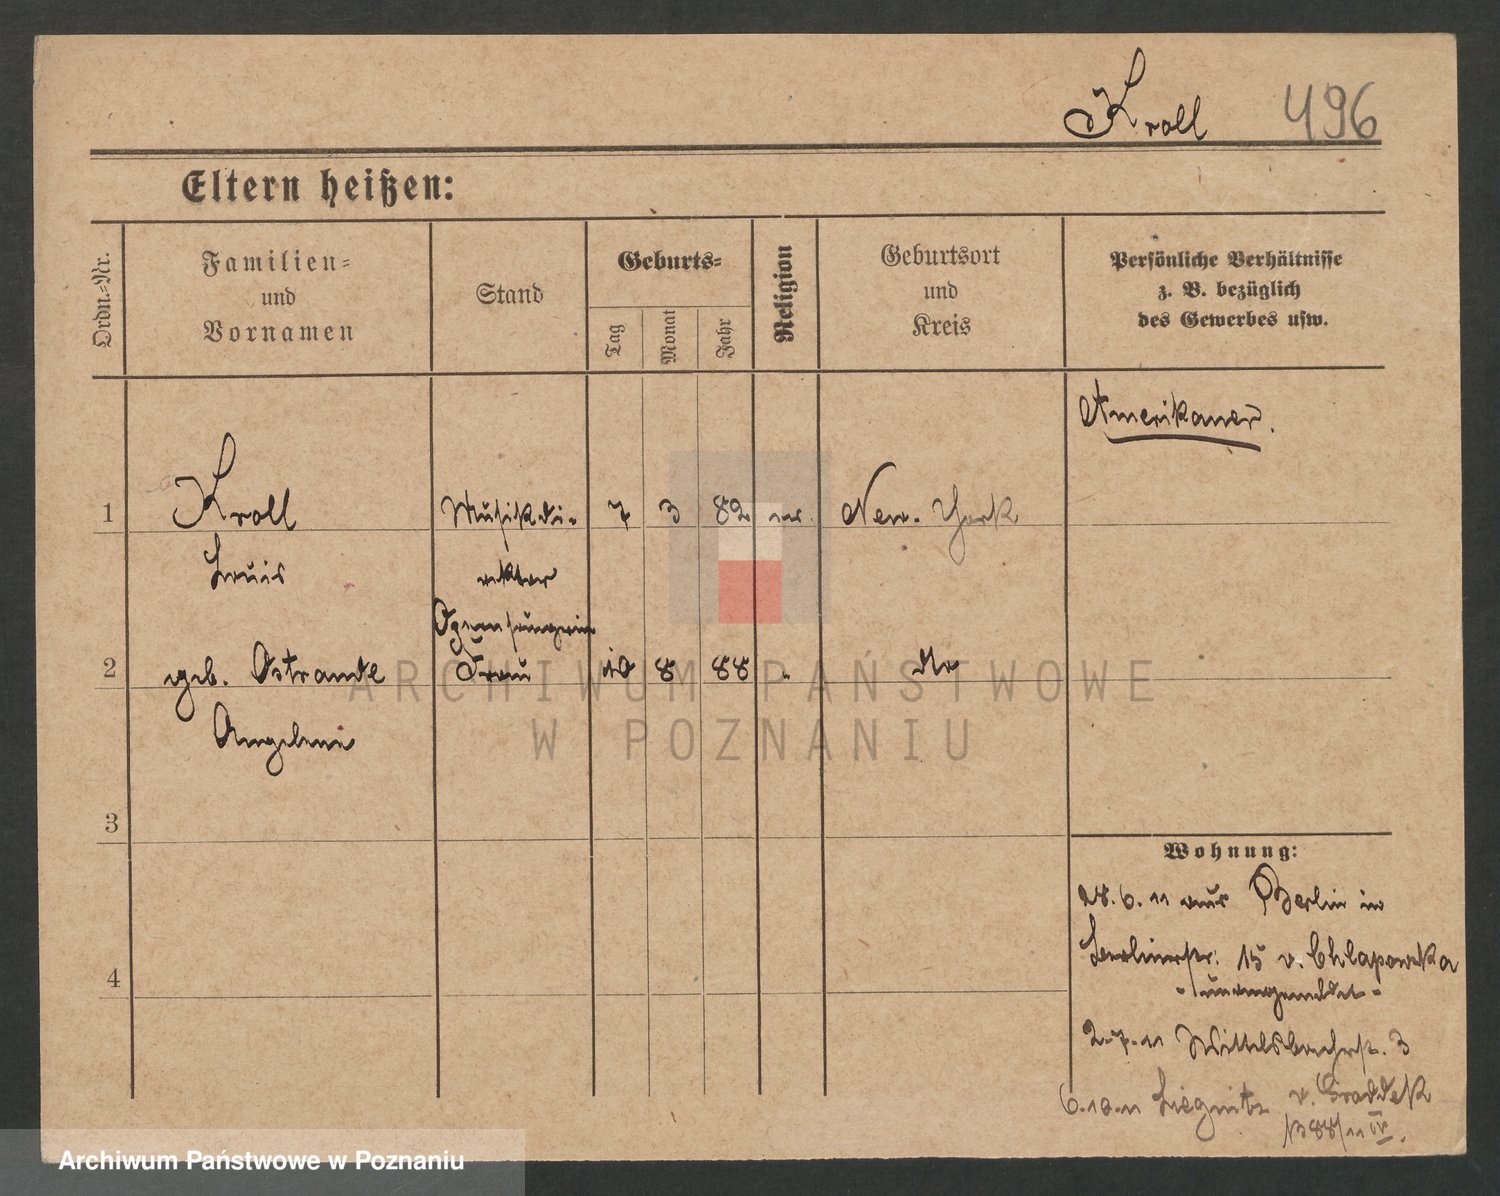 Kroll 496
Eltern heißen:
Ordn.-Nr.
Familien-
und
Vornamen
Stand
Geburts-
Tag
Monat
Jahr
Religion
Geburtsort
und
Kreis
Persönliche Verhältnisse
z. B. bezüglich
des Gewerbes usw.
Amerikaner.
1 Kroll Musikdi- 7 3 82 New-York
Louis rektor
Opernsängerin
2 geb. Ostrande Frau 10 8 88 " do
Angeleni
3
4
Wohnung:
28.6.11 aus Berlin in
Berlinerstr. 15 v. Chlapowska
- unangemeldet -
2.7.11 Wittelsbacherstr. 3
6.10.11 Liegnitz v. Graddek
1388/11 IV.
ARCHIWUM PAŃSTWOWE
W POZNANIU
Archiwum Państwowe w Poznaniu